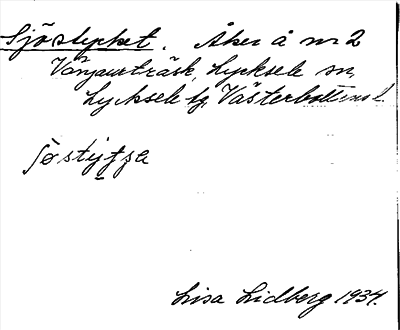 Sjöstycket. Åker å nr 2
Vänjaurträsk, Lycksele sn,
Lycksele tg, Västerbottens l.
Lisa Lidberg 1934.